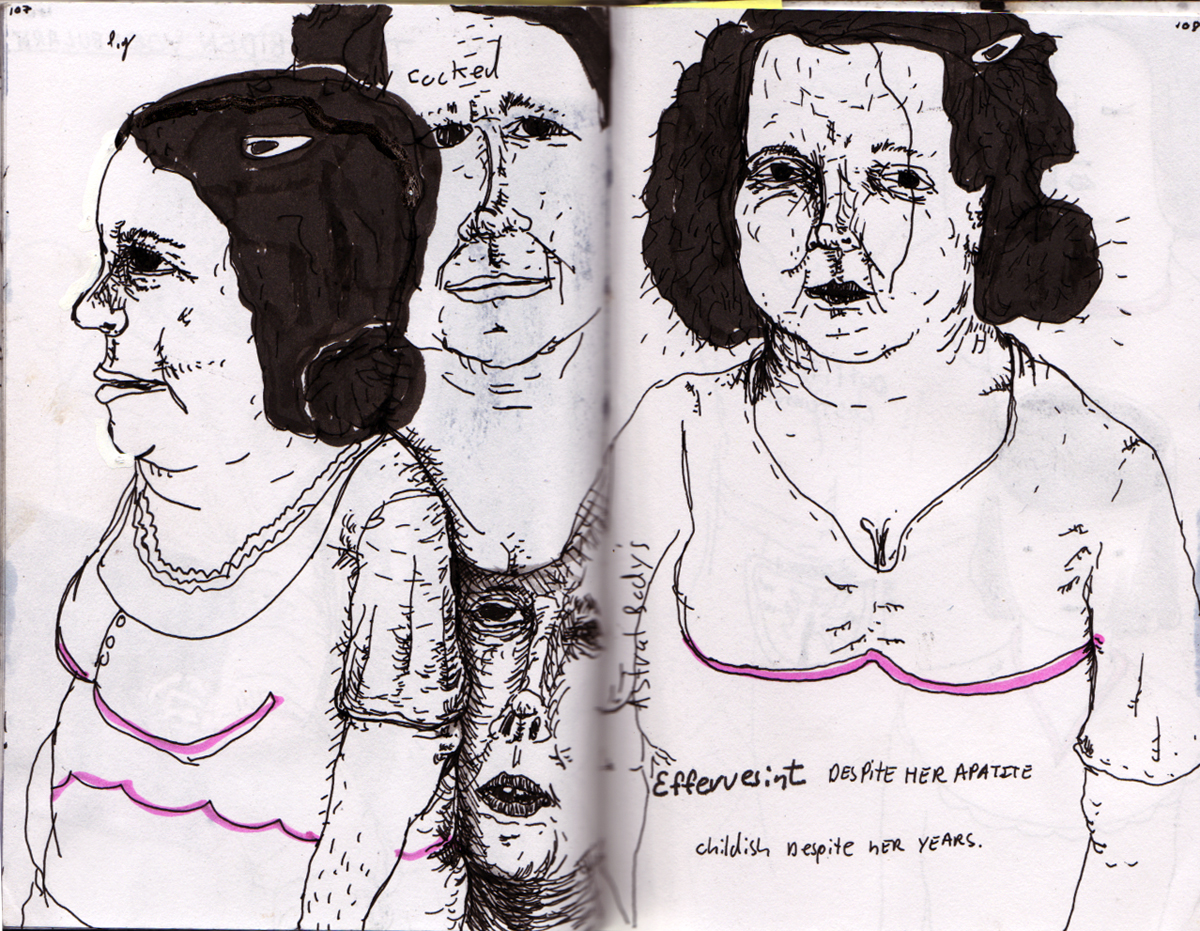 107
pig
cocked
Astral Bodys
108
Effervesint DESPITE HER APATITE
childish Despite HER YEARS.